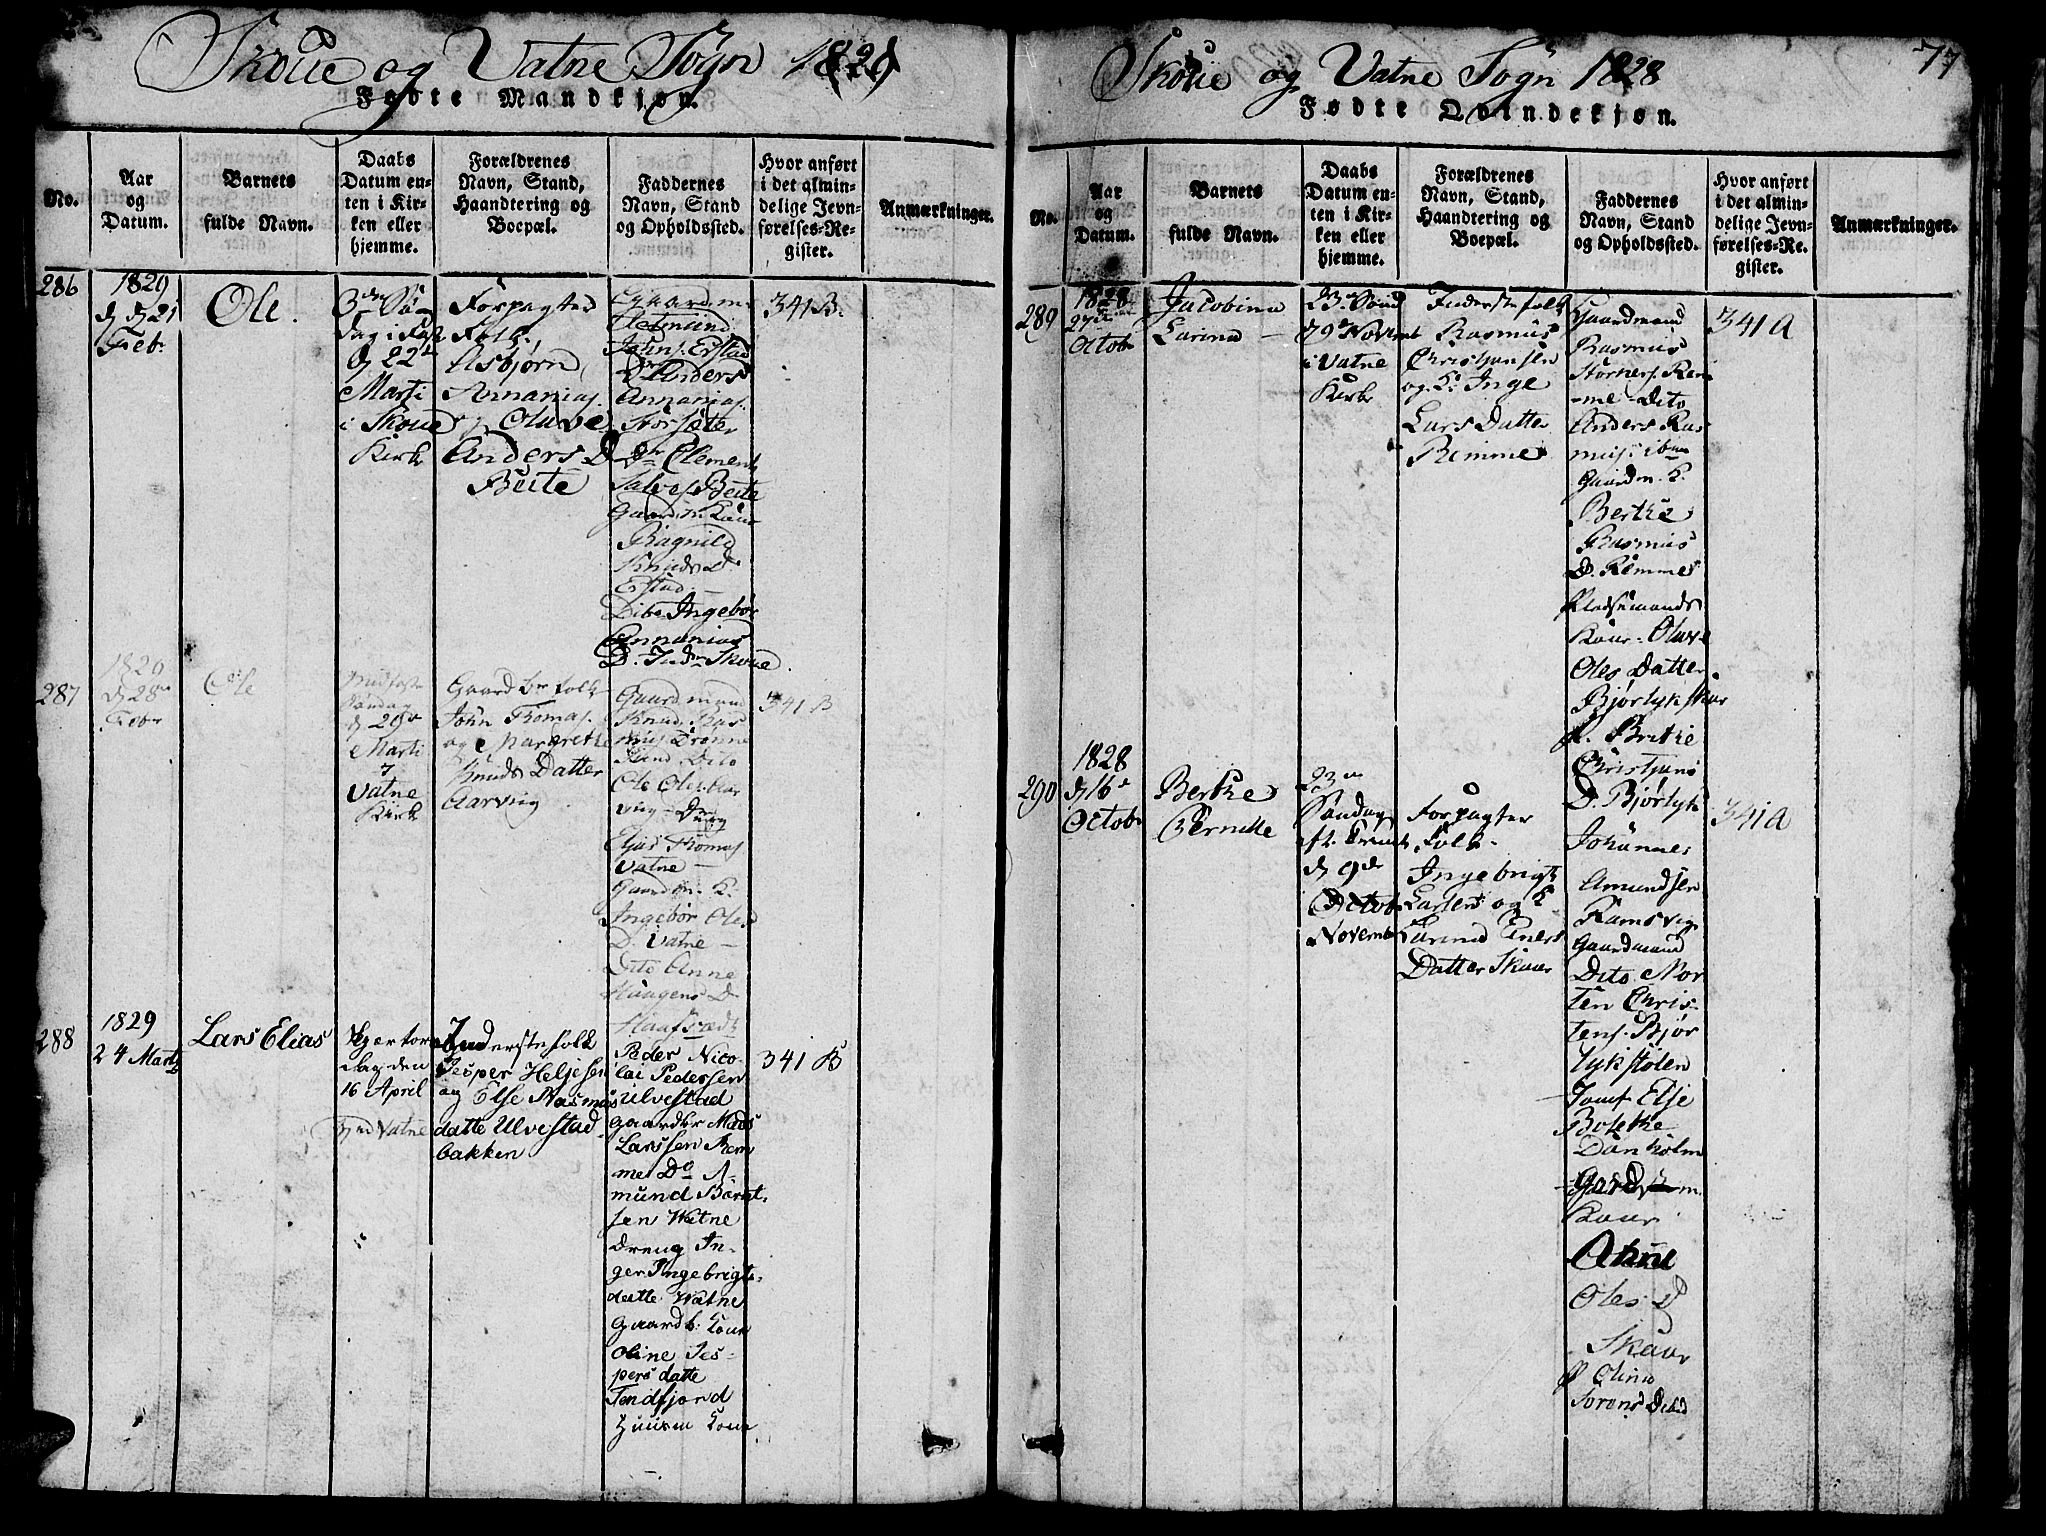 Skoue og Vatne Sogn 1829
Fødte Mandkjøn.
No.
Aar
og
Datum.
Barnets
fulde Navn.
Daabs
Datum en-
ten i Kir-
ken eller
hjemme.
Forældrenes
Navn, Stand,
Haandtering og
Boepæl.
Faddernes
Navn, Stand
og Opholdssted.
Hvor anført
i det almin-
delige Jevn-
førelses-Re-
gister.
Anmærkninger.
286
1829
d. 21
Feb.
Ole.
3die Søn
dag i Fast
d 22de
Marti
i Skoue
Kirke
Forpagter
Folk.
Asbjørn
Annanias.
og Oluve
Anders D.
Beite
Gaardm.
Johns. Erstad
Do Anders
Annanias.
Storsæter
Do Clement
Salves. Beite
Gaardm. Kone
Ragnild
Knuds D.
Erstad
Dito Ingebor
Annanias
D. Skoue
341 B.
287
1829
d 28de
Febr
Ole
Midfaste
Søndag
d 29de
Marti
i
Vatne
Kirke
Gaardbr folk
John Thomas.
og Margrethe
Knuds Datter
Aarvig
Gaardmand
Knud Ras
mus. Brønne
Dito
Ole Oles. Aar
vig
Thomas.
Vatne
Gaardm. K.
Ingebor Oles
D. Vatne
Dito Anne
Haagens D
341 B
288
1829
24 Marti
Lars Elias
Skjærtors
dag den
16 April
Vatne
Inderstefolk
Jesper Heljesen
og Else Rasmus
datte Ulvestad
bakken
Peder Nico-
lai Pedersen
Ulvestad
gaardbr Mads
Larssen Rem
mei Do A-
mund Barnt.
sen Watne
Dreng In-
ger Ingebrigts-
datte Watne
gaardb. Kone
Oline Jes-
pers datte
Tendfjord
Huusm Kone
341 B
Skoue og Vatne Sogn 1828
77
Fødte Qvindekjøn.
No.
Aar
og
Datum.
Barnets
fulde Navn.
Daabs
Datum en-
ten i Kir-
ken eller
hjemme.
Forældrenes
Navn, Stand,
Haandtering og
Boepæl.
Faddernes
Navn, Stand
og Opholdssted.
Hvor anført
i det almin-
delige Jevn-
førelses-Re-
gister.
Anmærkninger.
289
1828
27de
Octobr
Jacobina
Larina
Novemb
i Vatne
Kirke
Inderstefolk
Rasmus
Christjansen
og K. Inge
Lars Datter
Remme
Gaardmand
Rasmus
Rem
me Dito
Anders Ras
mus. ibm
Gaardm. K.
Berthe
Rasmus
D. Remme
Pladsemands
Kone Oluve
Oles Datter
Bjørlykskar
p. Brithe
Christjans
D. Bjørlyk
341 A
290
1828
d 16de
Octobr
Berthe
Bernille
23de
Søndag
ft. Trinit
d 9de
Octob
November
Forpagter
Folk
Ingebrigt
Larsen og K
Larina Iners
Datter Skaar
Johannes
Amundsen
Ramsvig
Gaardmand
Dito Mor
ten Chris-
tens. Bjør
lykstølen
Jomf Else
Bolethe
Danholm
Kone
Anne
Oles D
Skaar
p Olina
Sorens D
341 A